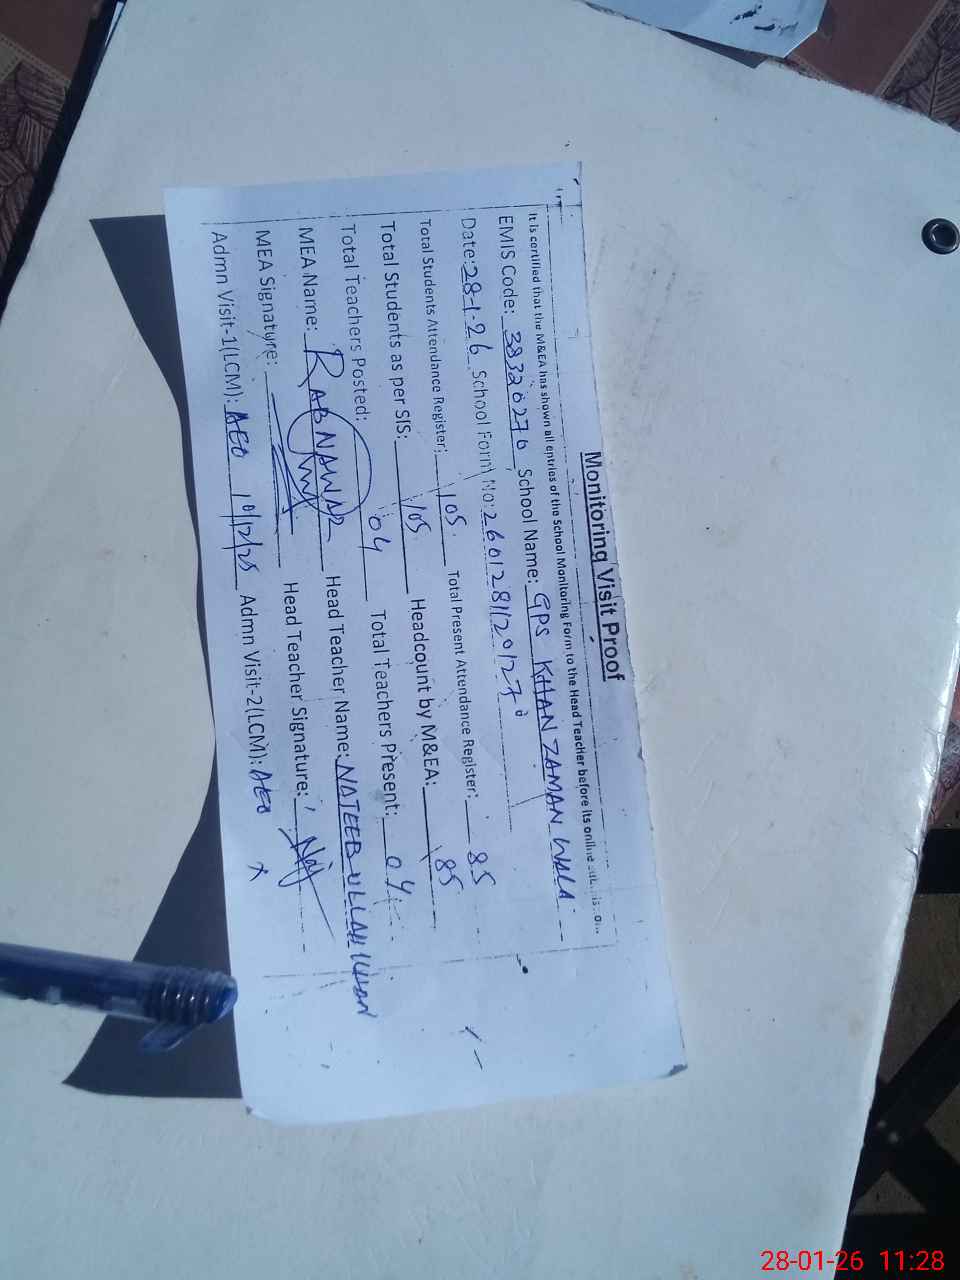 Monitoring Visit Proof
It is certified that the M&EA has shown all entries of the School Monitoring Form to the Head Teacher before its online
EMIS Code: 38320270 School Name: GPS KHAN ZAMAN WALA
Date: 28-1-26 School Form No: 260128112017270
Total Students Attendance Register: 105 Total Present Attendance Register: 85
Total Students as per SIS: 105 Headcount by M&EA: 85
Total Teachers Posted: 04 Total Teachers Present: 04
MEA Name: RAB NAWAZ Head Teacher Name: NAJEEB ULLAH KHAN
MEA Signature: Head Teacher Signature:
Admn Visit-1(LCM): AEO 10/12/25 Admn Visit-2(LCM): AEO x
28-01-26 11:28